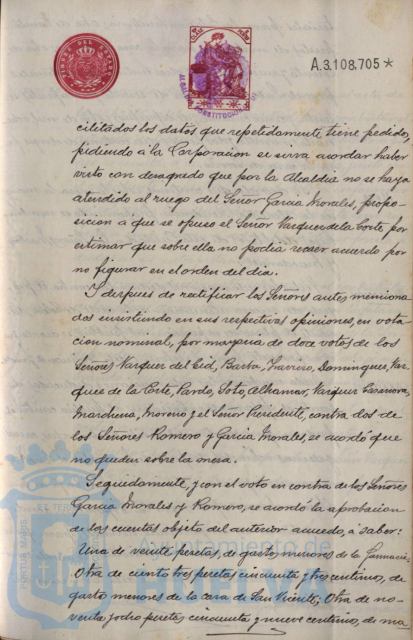 TIMBRE DEL ESTADO
A.3.108.705*
cilitados los datos que repetidamente tiene pedido,
pidiendo á la Corporacion se sirva acordar haber
visto con desagrado que por la Alcaldia no se haya
atendido al ruego del Señor Garcia Morales, propo-
sicion á que se opuso el Señor Vazquez de la Corte por
estimar que sobre ella no podia recaer acuerdo por
no figurar en el orden del dia.
Y despues de rectificar los Señores antes menciona
dos insistiendo en sus respectivas opiniones, en vota
cion nominal, por mayoria de doce votos de los
Señores Vazquez del Cid, Barba, Dominguez, Vaz-
quez de la Corte, Pardo, Soto, Alhamar, Vazquez
Marchena, Moreno y el Señor Presidente, contra dos de
los Señores Romero y Garcia Morales, se acordó que
no queden sobre la mesa.
Seguidamente, y con el voto en contra de los Señores
Garcia Morales y Romero, se acordó la aprobacion
de las cuentas objeto del anterior acuerdo, á saber:
Una de veinte pesetas, de gastos menores de la
Otra de ciento tres pesetas cincuenta y tres centimos, de
gastos menores de la casa de San Vicente; Otra de no-
venta y ocho pesetas, cincuenta y nueve centimos, de ma-
Ayuntamiento de